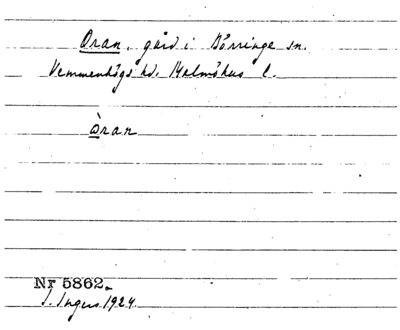 Oran, gård i Börringe sn.
Vemmenhögs hd. Malmöhus l.
Òran
Nr 5862.
I. Ingers 1924.